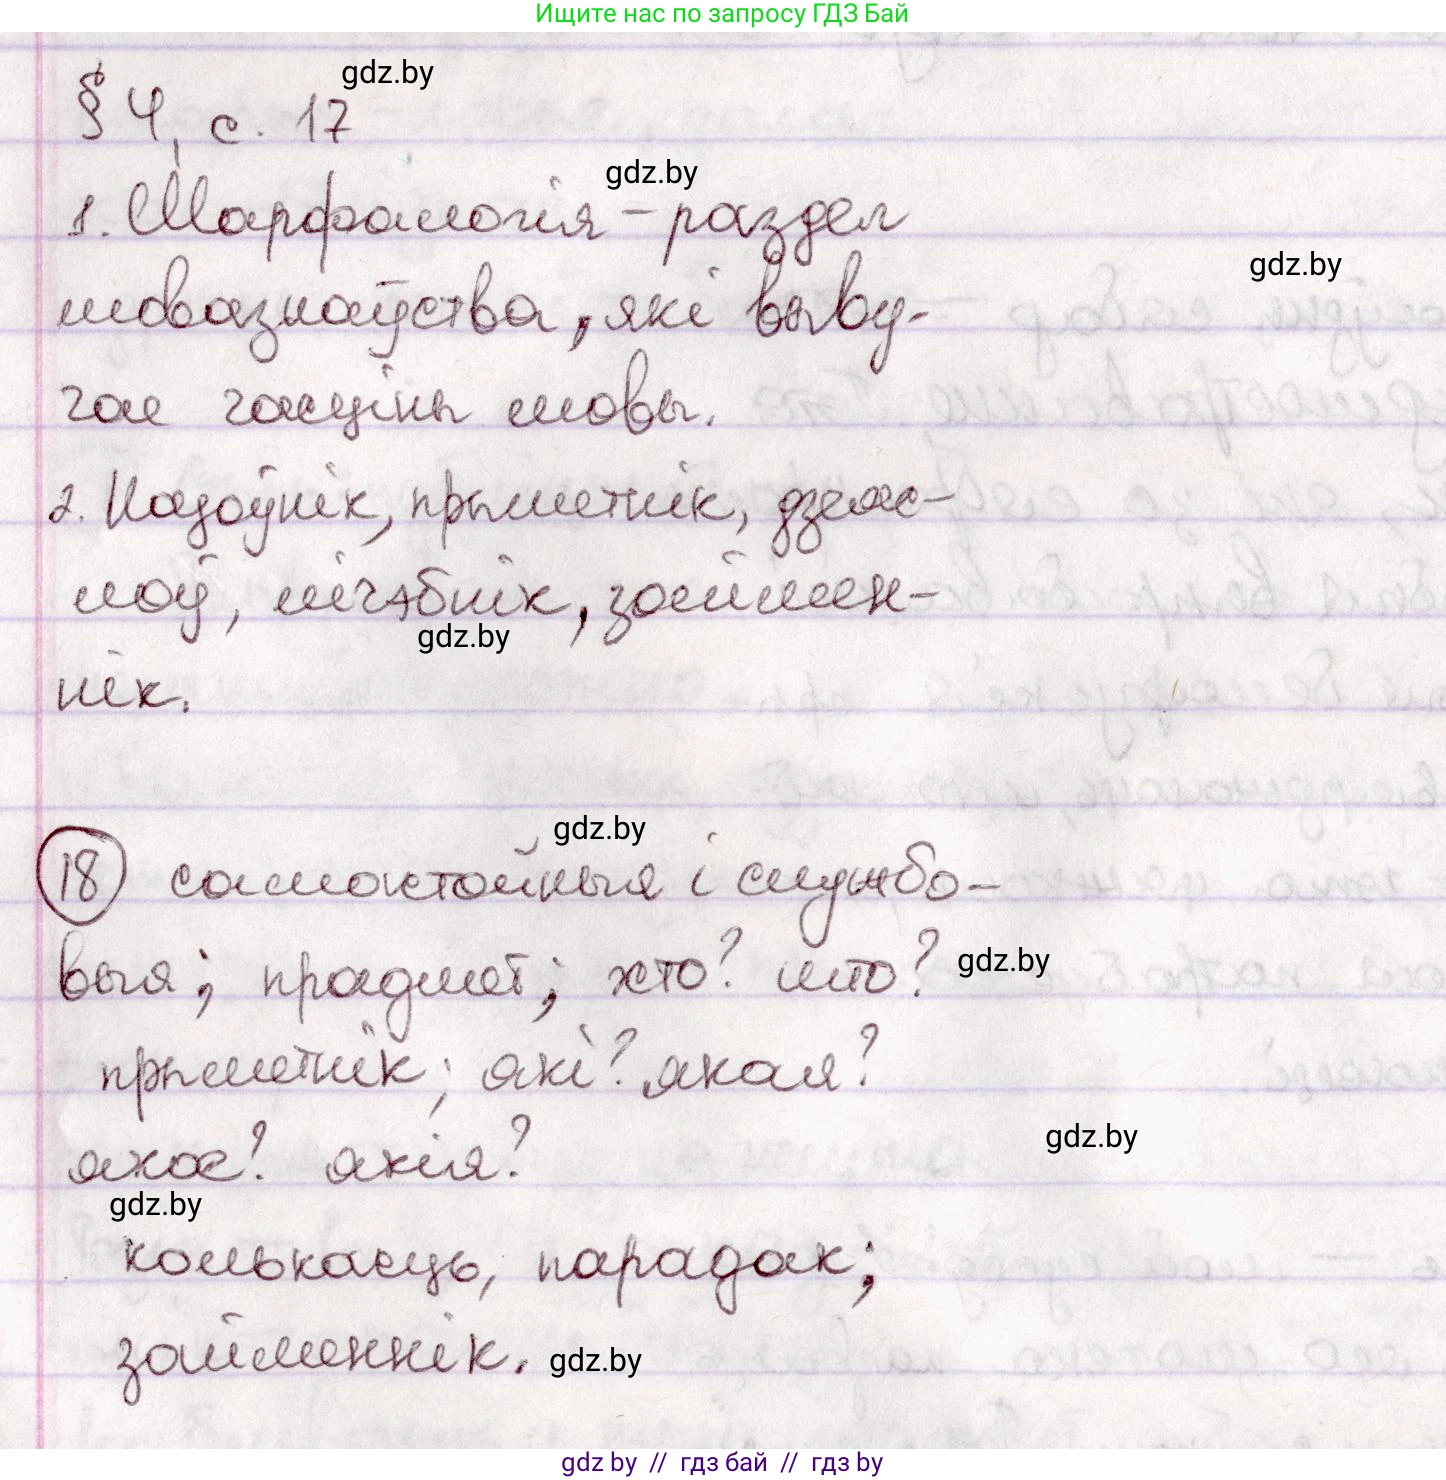 Ищите нас по запросу ГДЗ Бай
gdz.by
§ 4, с. 17
gdz.by
1. Марфалогія – раздзел
gdz.by
мовазнаўства, які выву-
чае часціны мовы.
2. Назоўнік, прыметнік, дзеяс-
лоў, лічэбнік, займен-
gdz.by
нік.
gdz.by
18 самастойныя і службо-
выя; прадмет; хто? што?
gdz.by
прыметнік; які? якая?
якое? якія?
gdz.by
gdz.by
колькасць, парадак;
займеннік.
gdz.by
gdz.by // гдз бай // гдз by